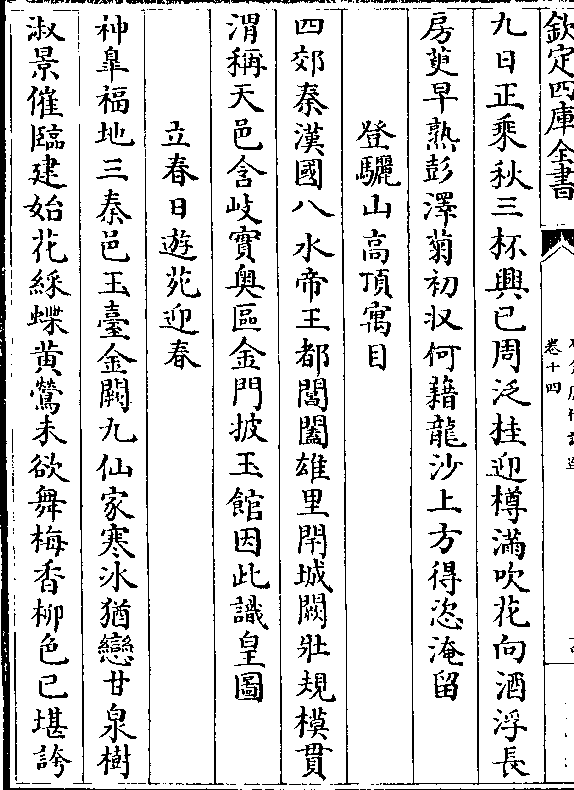 欽定四庫全書
卷十四
九日正乘秋三杯興已周泛桂迎樽滿吹花向酒浮長
房萸早熟彭澤菊初収何藉龍沙上方得恣淹留
登驪山高頂寓目
四郊秦漢國八水帝王都閶闔雄里閈城闕壯規模貫
渭稱天邑含岐實奥區金門披玉館因此識皇圖
立春日遊苑迎春
神臯福地三秦邑玉臺金闕九仙家寒冰猶戀甘泉樹
淑景催臨建始花綵蝶黄鶯未欲舞梅香柳色已堪誇